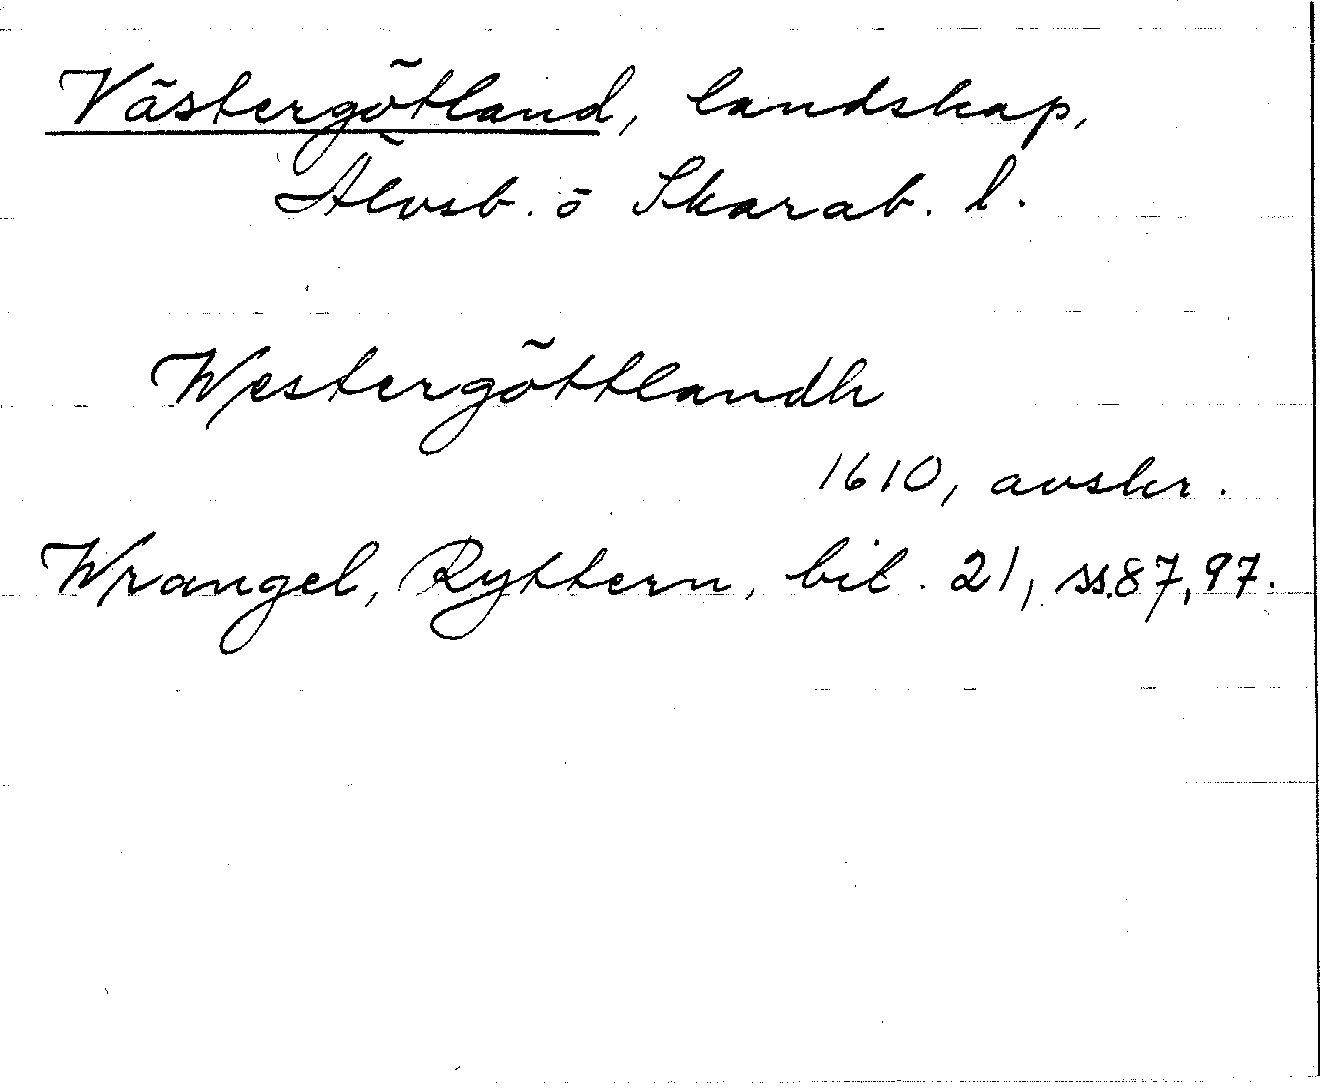 Västergötland, landskap,
Älvsb. o Skarab. l.
Westergöttlandh
1610, avskr.
Wrangel, Ryttern, bil. 21, ss.87,97.